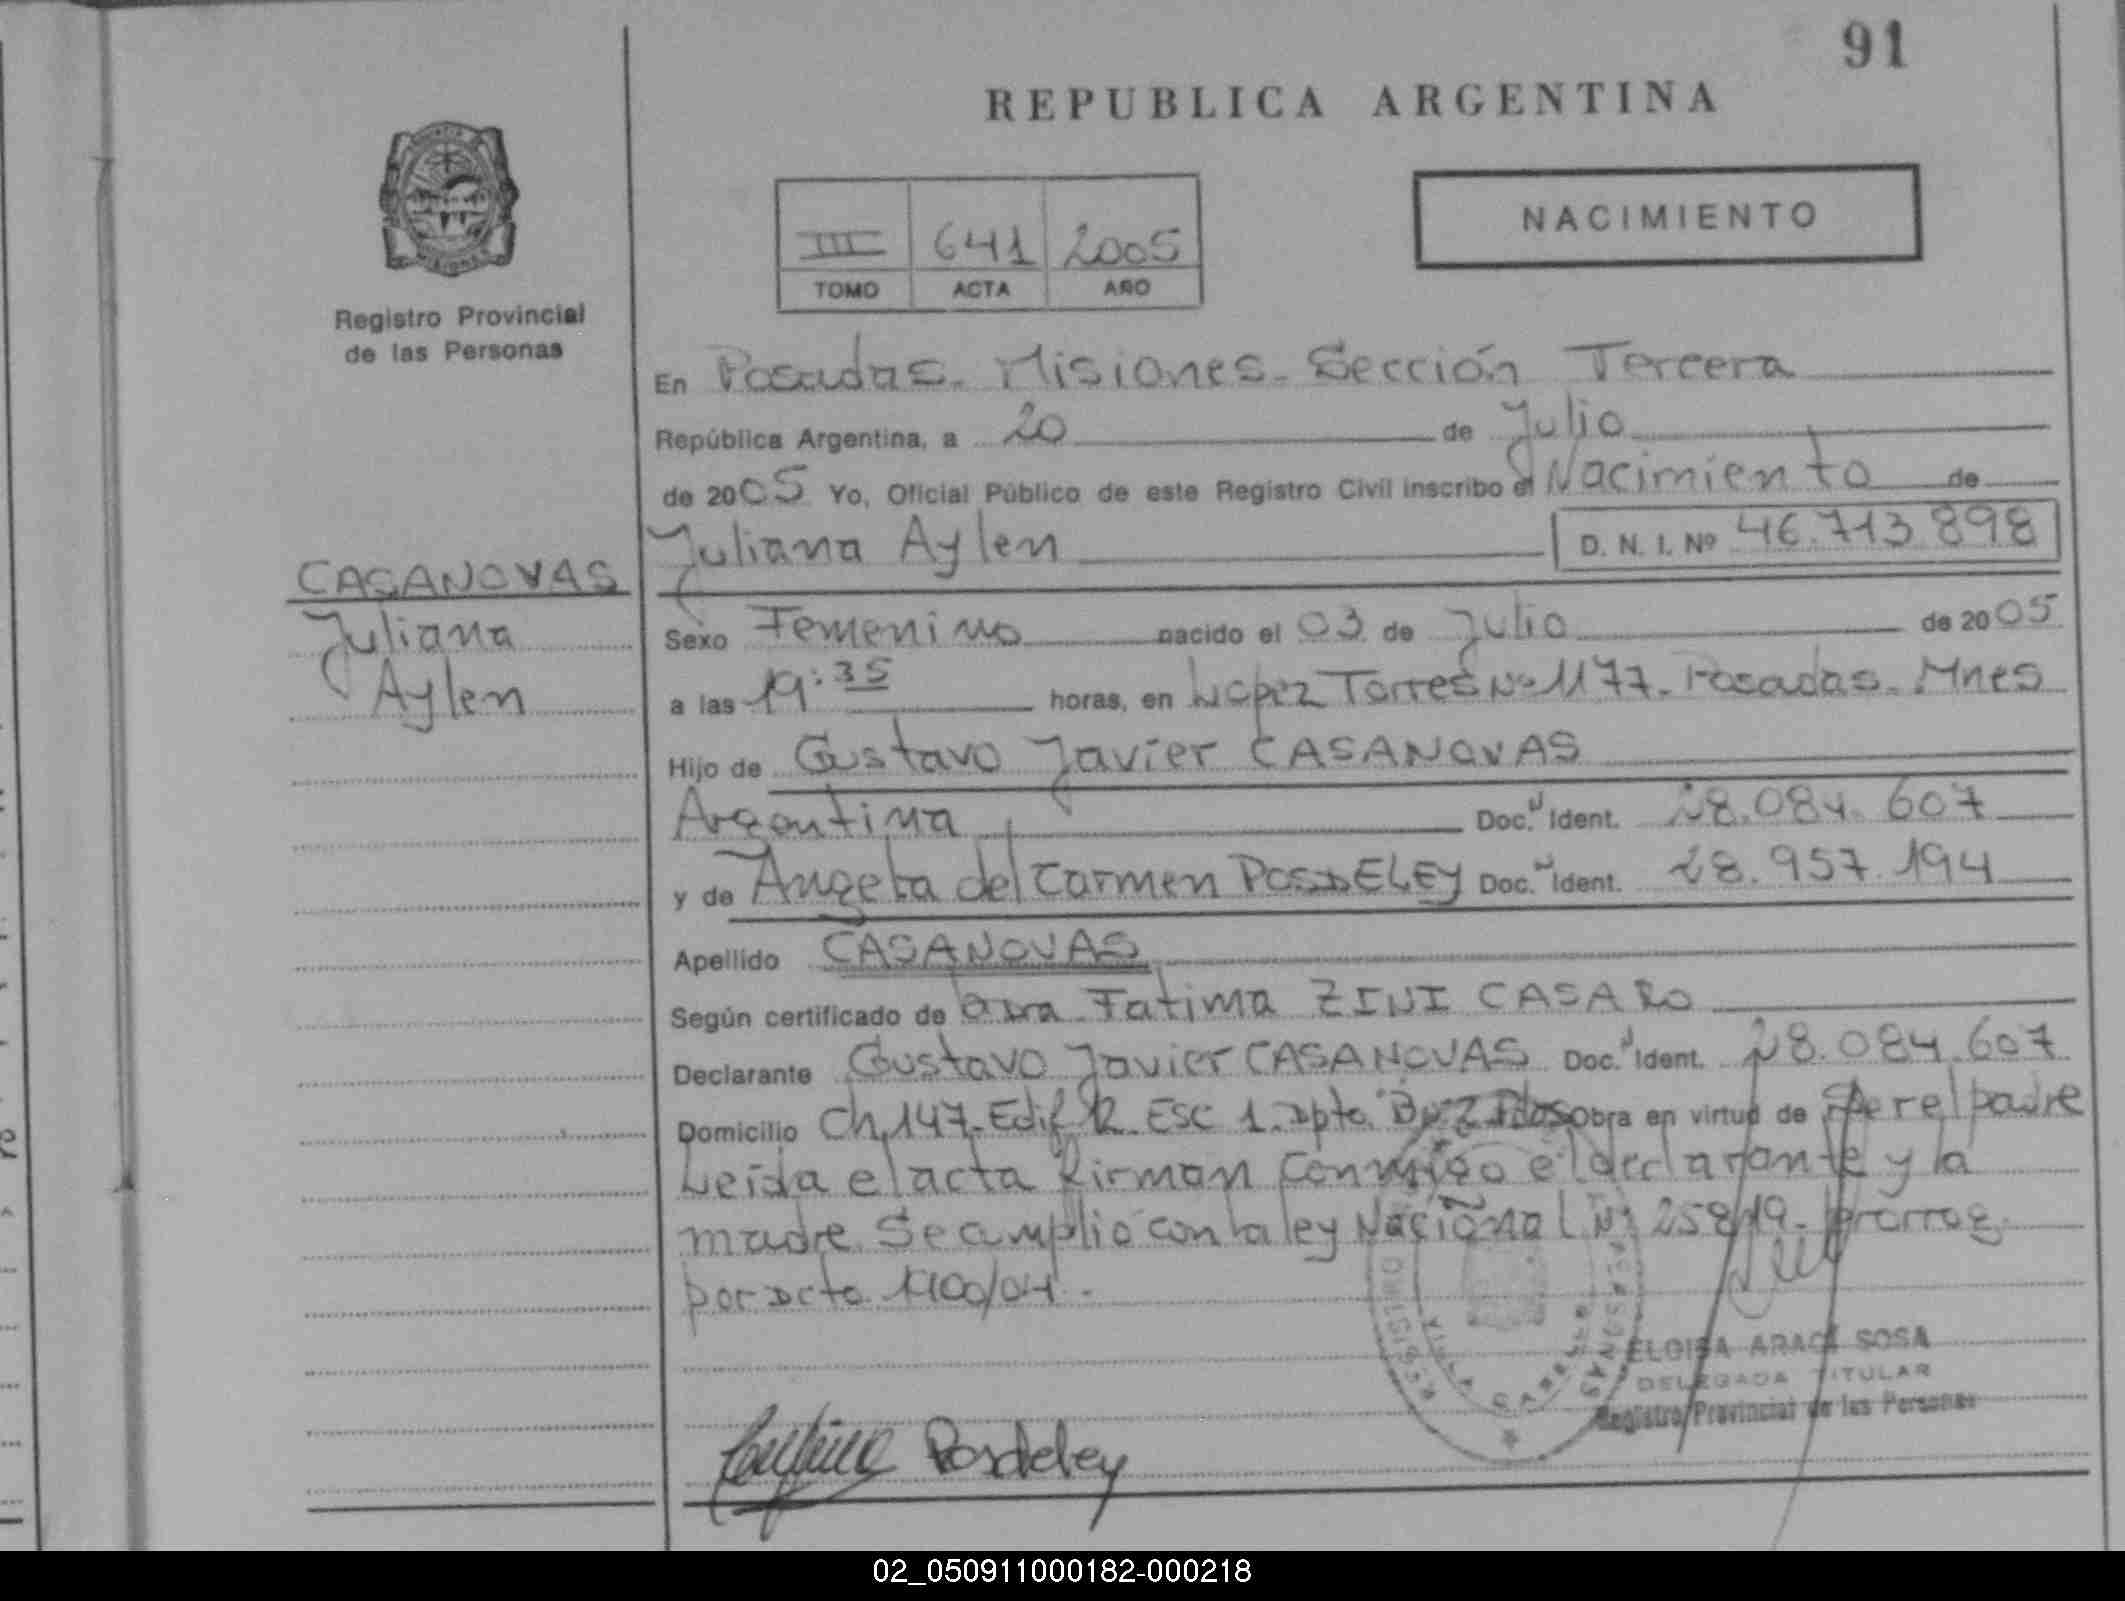 91
REPUBLICA ARGENTINA
NACIMIENTO
III 641 2005
TOMO ACTA AÑO
Registro Provincial
de las Personas
En Posadas. Misiones. Sección Tercera
República Argentina, a 20 de Julio
de 2005 Yo, Oficial Público de este Registro Civil inscribo el Nacimiento de
Juliana Aylen D. N. I. Nº 46.713.898
CASANOVAS
Juliana
Aylen
Sexo Femenino nacido el 03 de Julio de 2005
a las 19:35 horas, en López Torres Nº 1177. Posadas. Mnes
Hijo de Gustavo Javier CASANOVAS
Argentina Doc. Ident. 28.084.607
y de Angela del Carmen POSDELEY Doc. Ident. 28.957.194
Apellido CASANOVAS
Según certificado de Fatima ZINI CASARO
Declarante Gustavo Javier CASANOVAS Doc. Ident. 28.084.607
Domicilio Ch 147. Edif R. Esc 1. Dpto. Obra en virtud de Ser el padre
Leída el acta firman conmigo el declarante y la
madre. Se amplio con la ley Nacional Nº 25819. prorrog.
por Dcto 1100/04.
ELOISA ARACI SOSA
DELEGADA TITULAR
Registro Provincial de las Personas
VILLA CABELLO
Posdeley
02_050911000182-000218